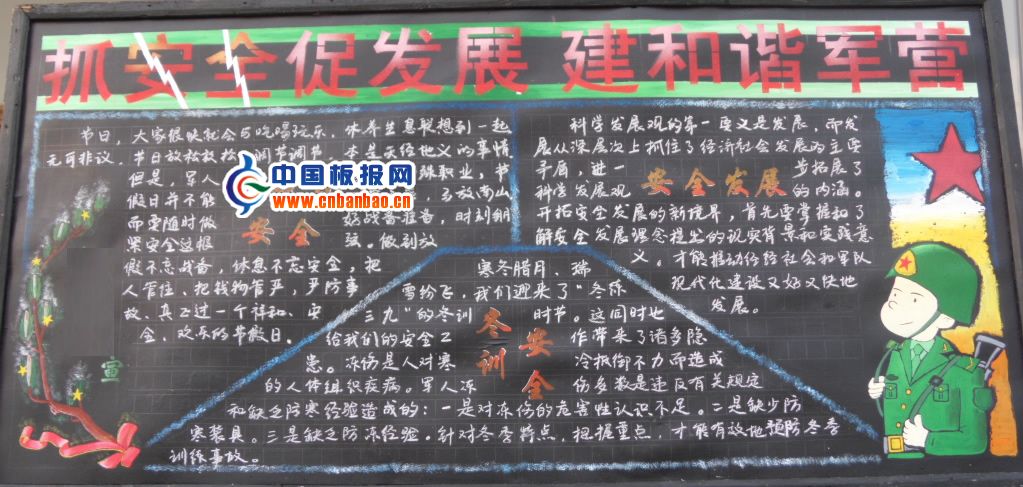 抓安全促发展 建和谐军营
节日，大家很快就会与吃喝玩乐、休养生息联想到一起
无可非议，节日放松放松 调节调节，本是天经地义的事情
但是，军人 殊职业，节
假日并不能 马放南山
而要随时做 好战备准备，时刻绷
紧安全这根 弦。做到放
安全
假不忘战备，休息不忘安全，把
人管住、把钱物管严，严防事
故、真正过一个祥和、安
全、欢乐的节假日。
宣
中国板报网
www.cnbanbao.cn
科学发展观的第一要义是发展，而发
展从深层次上抓住了经济社会发展的主要
矛盾，进一 步拓展了
科学发展观 的内涵。
安全发展
开拓安全发展的新境界，首先要掌握和了
解安全发展理念提出的现实背景和实践意
义。才能推动经济社会和军队
现代化建设又好又快地
发展。
寒冬腊月、瑞
雪纷飞，我们迎来了“冬练
三九”的冬训 时节。这同时也
给我们的安全工 作带来了诸多隐
患。冻伤是人对寒 冷抵御不力而造成
的人体组织疾病。军人冻 伤多数是违反有关规定
冬训安全
和缺乏防寒经验造成的：一是对冻伤的危害性认识不足。二是缺少防
寒装具。三是缺乏防冻经验。针对冬季特点，把握重点，才能有效地预防冬季
训练事故。